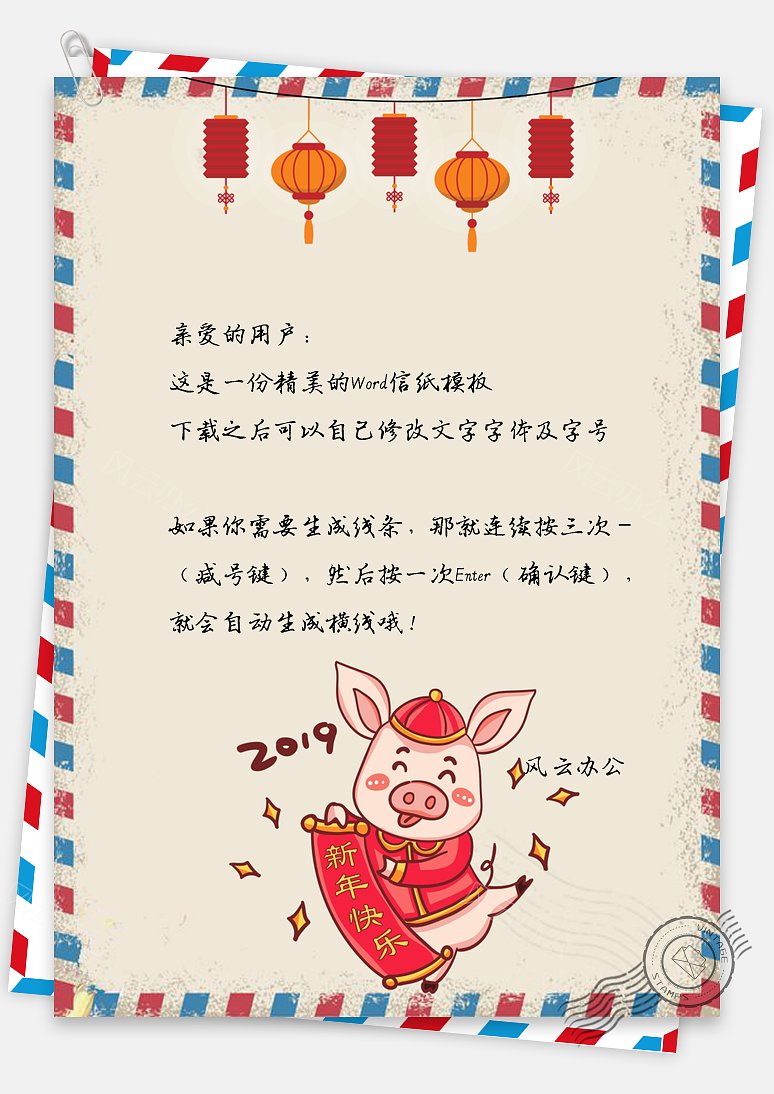 亲爱的用户：
这是一份精美的Word信纸模板
下载之后可以自己修改文字字体及字号
如果你需要生成线条，那就连续按三次－
（减号键），然后按一次Enter（确认键），
就会自动生成横线哦！
2019
风云办公
新年快乐
VINTAGE
STAMPS
风云办公
风云办公